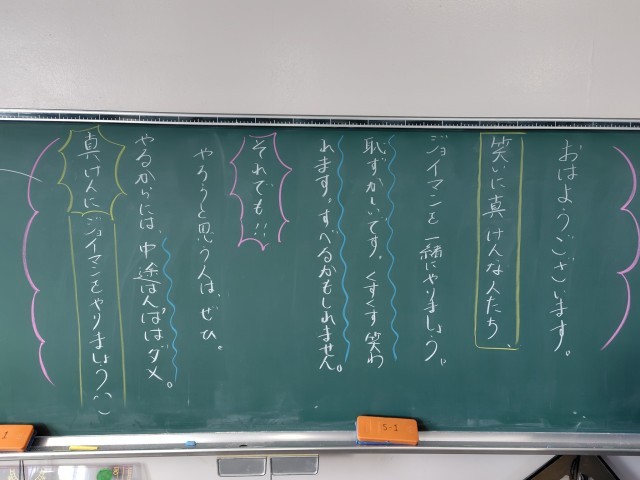 おはようございます。
笑いに真けんな人たち、
ジョイマンを一緒にやりましょう。
恥ずかしいです。くすくす笑わ
れます。すべるかもしれません。
それでも!!
やろうと思う人は、ぜひ。
やるからには、中途はんぱはダメ。
真けんにジョイマンをやりましょう(^^)
5-1
1